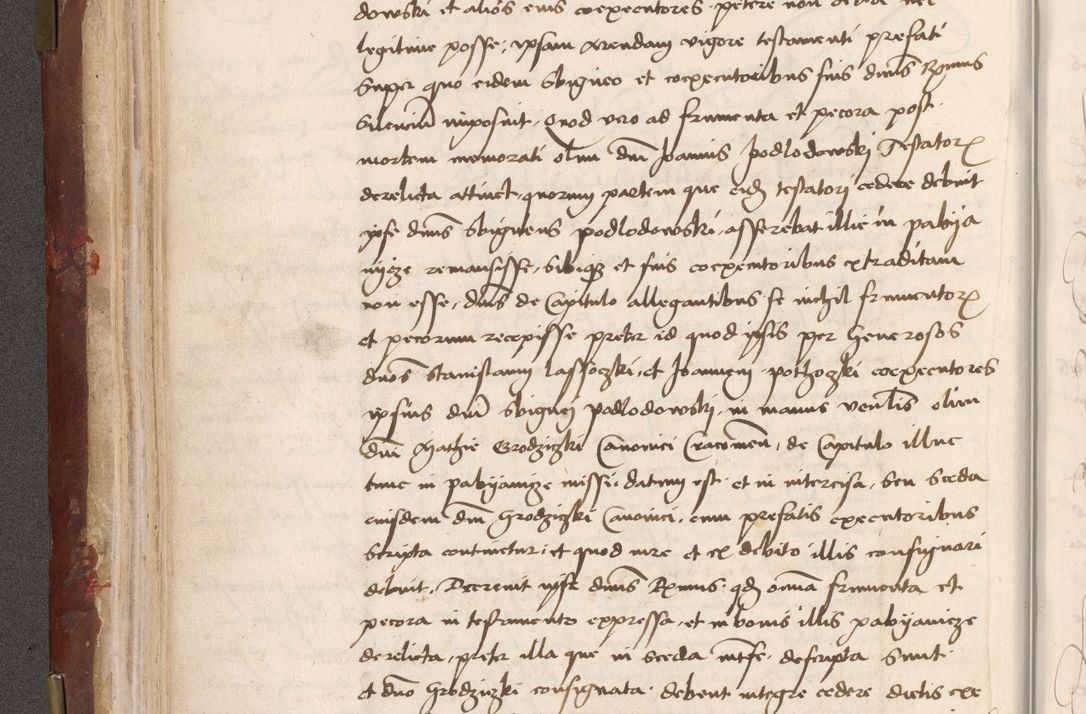 dowski et alios eius coexecutores petere non
legitime posse, ipsam arendam vigore testamenti prefati
Super quo eidem Sbigneo et coexecutoribus suis dnus Rmus
silenciu imposuit. Quod vero ad frumenta et pecora post
mortem memorati olim dni Joannis Podlodowski Testator
derelicta attinet, quorum partem que eid testatori cedere debuit
ipse dnus Sbigneus podlodowski, asserebat illic in pabya
nycze remansisse, sibiq et suis coexecutoribus extraditam
non esse, dnis de Capitulo allegantibus se nichil frumentor
et pecorum recepisse preter id quod ipsis per Generosos
dnos Stanislaum lassoczki, et Joannem pothoczki coexecutores
ipsius dni Sbignei podlodowski, in manus venlis olim
dni Mathie Grodziczki Canonici Cracouien, de Capitulo illuc
tunc in pabyanicze missi, datum est, et in intercisa, seu sceda
eiusdem dni Grodziczki Canonici, cum prefatis executoribus
scripta continetur, et quod iure et ex debito illis consignari
debuit. Decrevit ipse dnus Rmus, qd omnia frumenta et
pecora in testamento expressa, et in bonis illis pabyanicze
derelicta, preter illa que in sceda descripta sunt
et dno Grodziczki consignata, debent integre cedere dictis exe